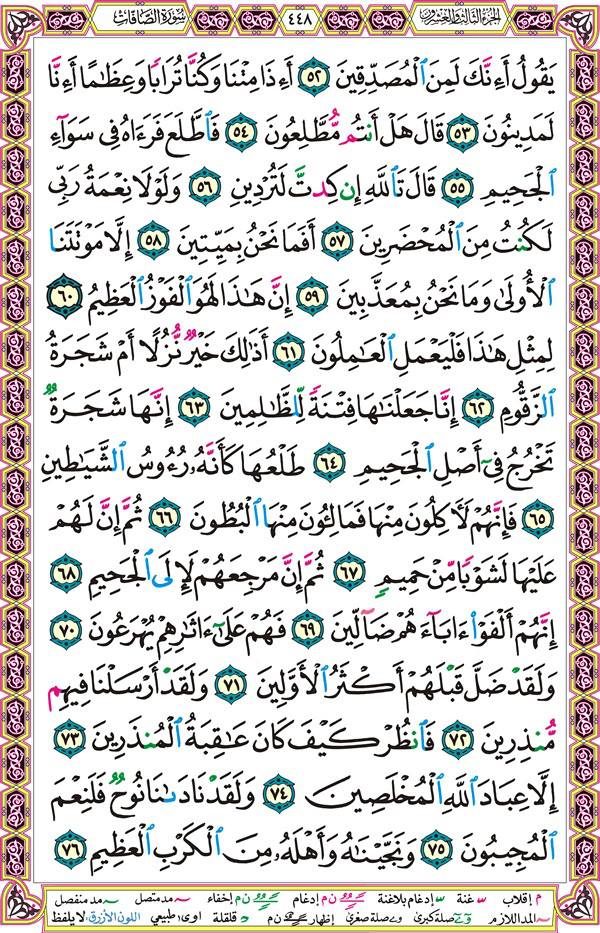 الجزء الثالث والعشرون ٤٤٨ سورة الصافات
يَقُولُ أَءِنَّكَ لَمِنَ ٱلْمُصَدِّقِينَ ٥٢ أَءِذَا مِتْنَا وَكُنَّا تُرَابًا وَعِظَٰمًا أَءِنَّا
لَمَدِينُونَ ٥٣ قَالَ هَلْ أَنتُم مُّطَّلِعُونَ ٥٤ فَٱطَّلَعَ فَرَءَاهُ فِى سَوَآءِ
ٱلْجَحِيمِ ٥٥ قَالَ تَٱللَّهِ إِن كِدتَّ لَتُرْدِينِ ٥٦ وَلَوْلَا نِعْمَةُ رَبِّى
لَكُنتُ مِنَ ٱلْمُحْضَرِينَ ٥٧ أَفَمَا نَحْنُ بِمَيِّتِينَ ٥٨ إِلَّا مَوْتَتَنَا
ٱلْأُولَىٰ وَمَا نَحْنُ بِمُعَذَّبِينَ ٥٩ إِنَّ هَٰذَا لَهُوَ ٱلْفَوْزُ ٱلْعَظِيمُ ٦٠
لِمِثْلِ هَٰذَا فَلْيَعْمَلِ ٱلْعَٰمِلُونَ ٦١ أَذَٰلِكَ خَيْرٌ نُّزُلًا أَمْ شَجَرَةُ
ٱلزَّقُّومِ ٦٢ إِنَّا جَعَلْنَٰهَا فِتْنَةً لِّلظَّٰلِمِينَ ٦٣ إِنَّهَا شَجَرَةٌ
تَخْرُجُ فِىٓ أَصْلِ ٱلْجَحِيمِ ٦٤ طَلْعُهَا كَأَنَّهُۥ رُءُوسُ ٱلشَّيَٰطِينِ
٦٥ فَإِنَّهُمْ لَءَاكِلُونَ مِنْهَا فَمَالِـُٔونَ مِنْهَا ٱلْبُطُونَ ٦٦ ثُمَّ إِنَّ لَهُمْ
عَلَيْهَا لَشَوْبًا مِّنْ حَمِيمٍ ٦٧ ثُمَّ إِنَّ مَرْجِعَهُمْ لَإِلَى ٱلْجَحِيمِ ٦٨
إِنَّهُمْ أَلْفَوْا۟ ءَابَآءَهُمْ ضَآلِّينَ ٦٩ فَهُمْ عَلَىٰٓ ءَاثَٰرِهِمْ يُهْرَعُونَ ٧٠
وَلَقَدْ ضَلَّ قَبْلَهُمْ أَكْثَرُ ٱلْأَوَّلِينَ ٧١ وَلَقَدْ أَرْسَلْنَا فِيهِم
مُّنذِرِينَ ٧٢ فَٱنظُرْ كَيْفَ كَانَ عَٰقِبَةُ ٱلْمُنذَرِينَ ٧٣
إِلَّا عِبَادَ ٱللَّهِ ٱلْمُخْلَصِينَ ٧٤ وَلَقَدْ نَادَىٰنَا نُوحٌ فَلَنِعْمَ
ٱلْمُجِيبُونَ ٧٥ وَنَجَّيْنَٰهُ وَأَهْلَهُۥ مِنَ ٱلْكَرْبِ ٱلْعَظِيمِ ٧٦
م إقلاب غنة إدغام بلاغنة ن م إدغام ن م إخفاء مد متصل مد منفصل
المد اللازم صلة كبرى صلة صغرى إظهار ن م قلقلة اوى طبيعي اللون الأزرق لا يلفظ